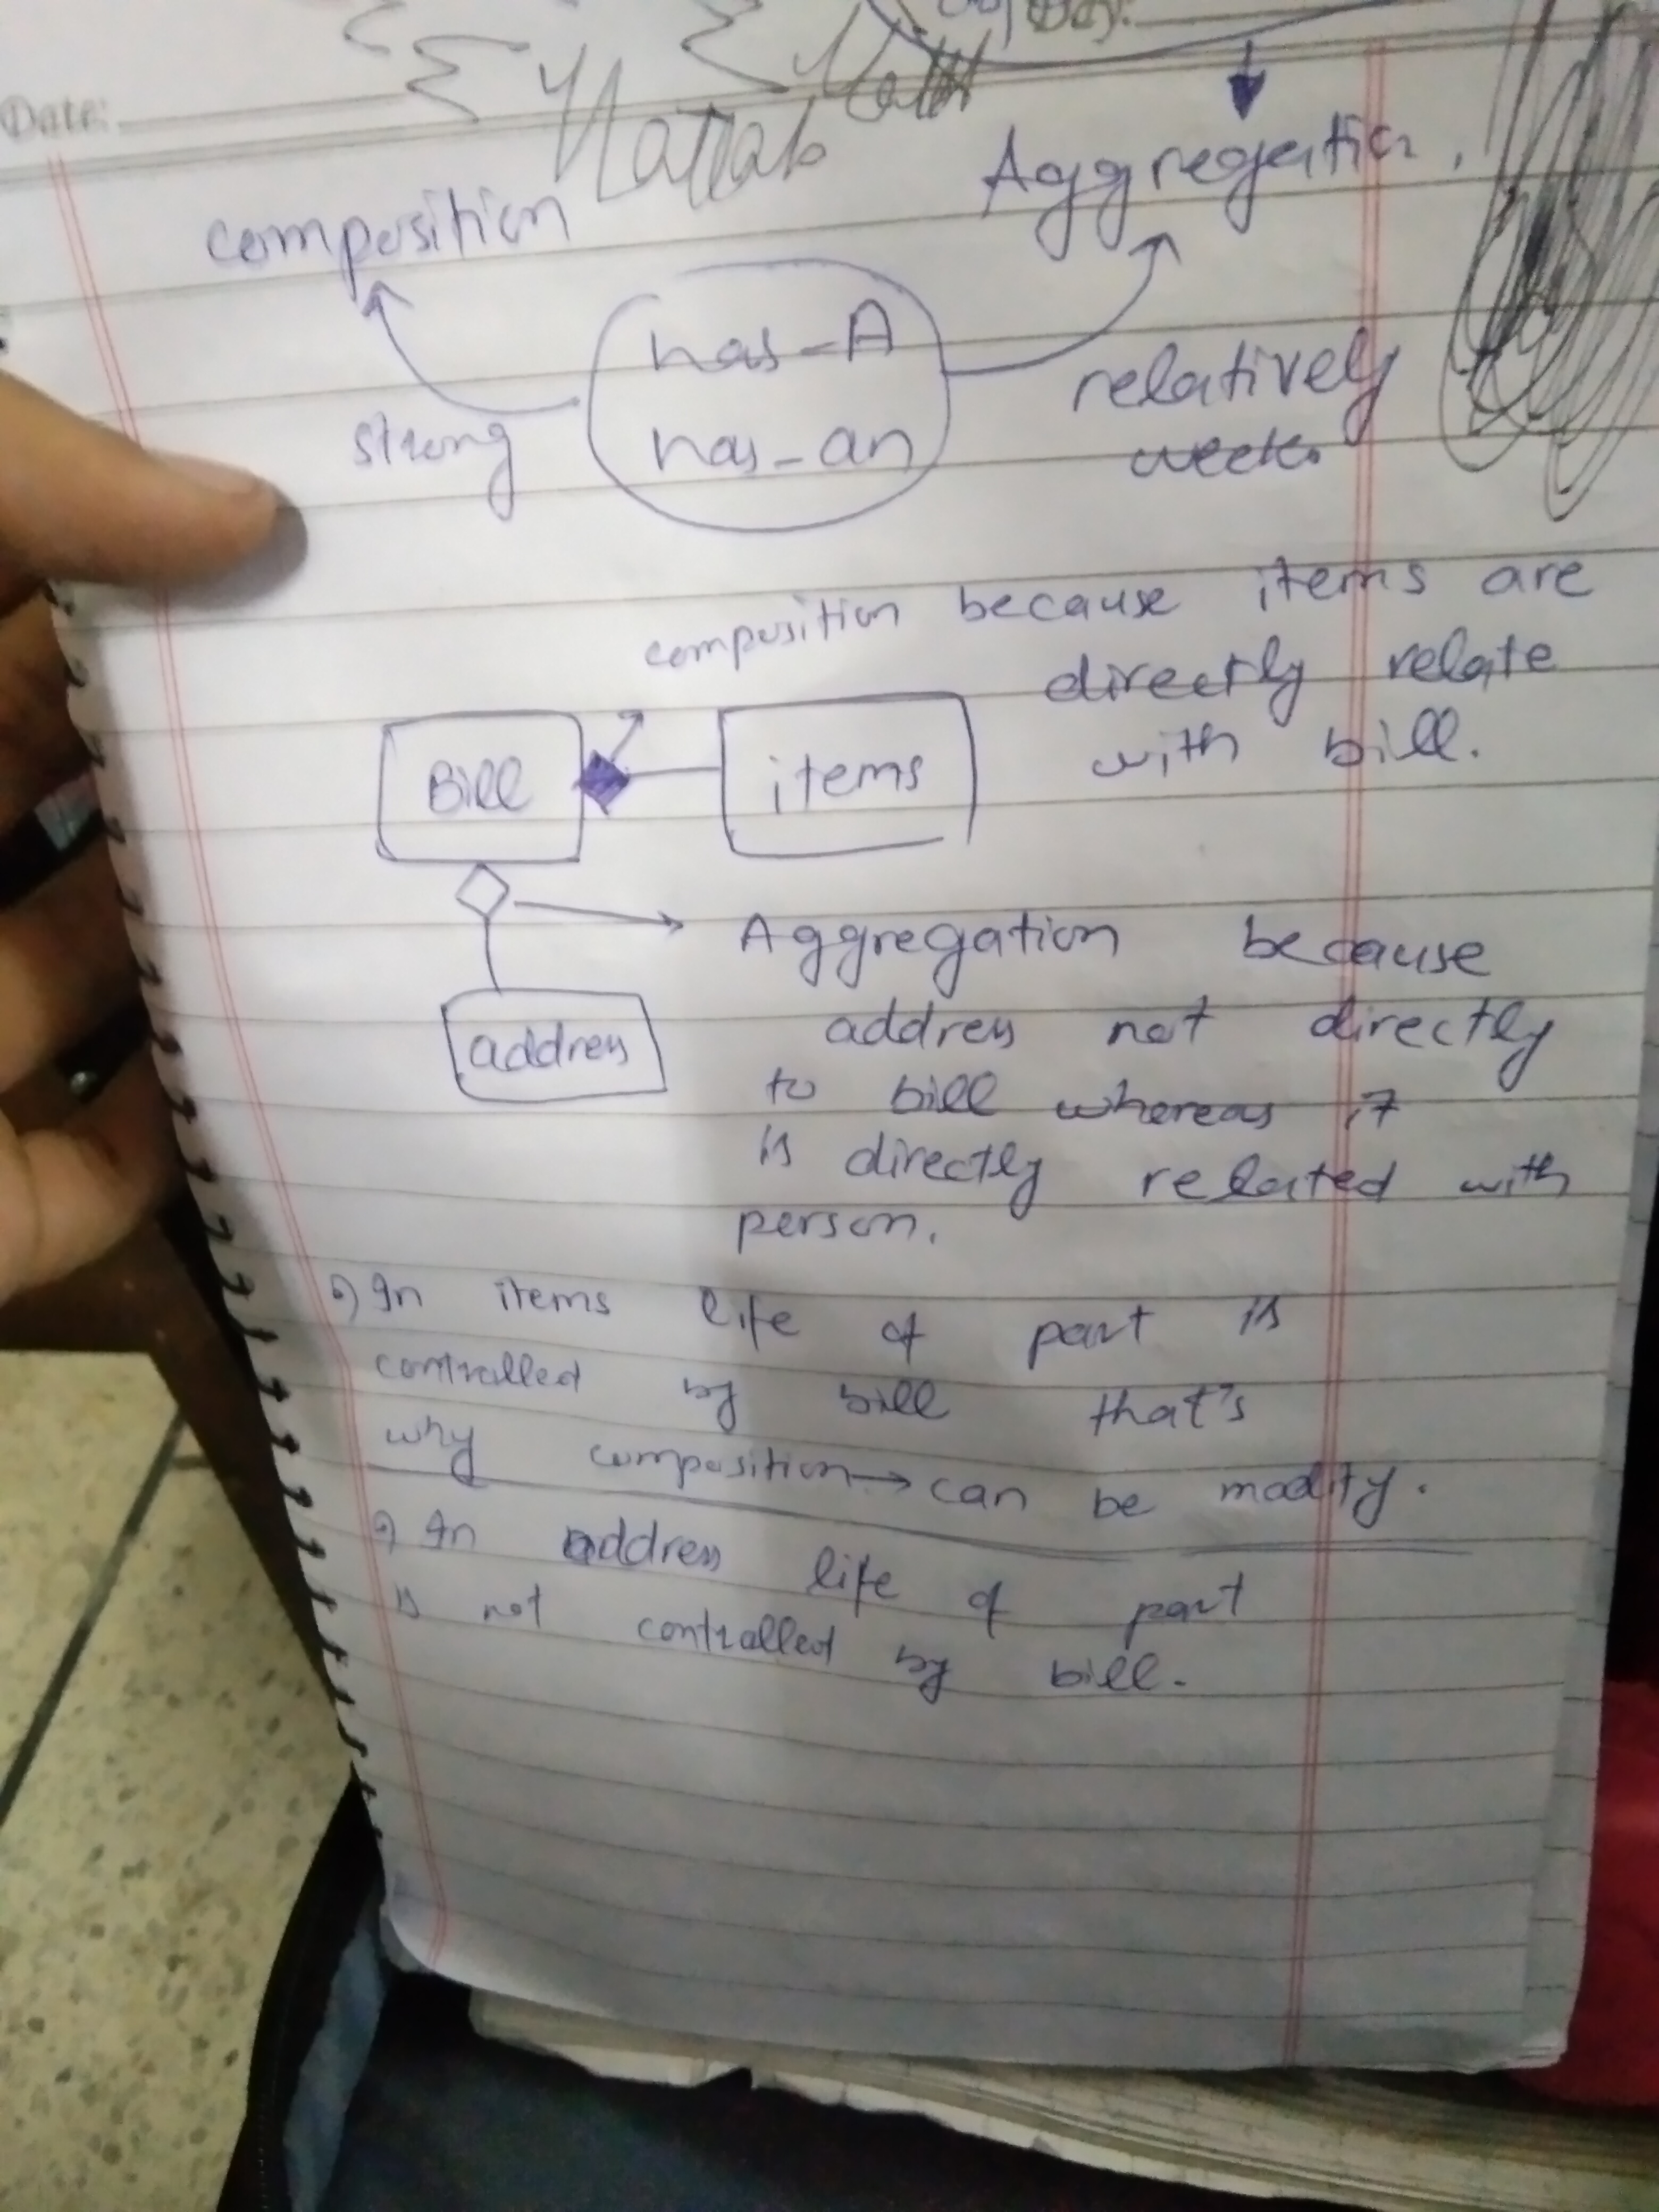 Day:
Date:
Matlab
composition
Aggregation.
has-A
has-an
strong
relatively
week.
composition because items are
directly relate
with bill.
Bill
items
Aggregation because
address
address not directly
to bill whereas it
is directly related with
person.
In items life of part is
controlled by bill that's
why composition → can be modify.
In address life of part
is not controlled by bill.